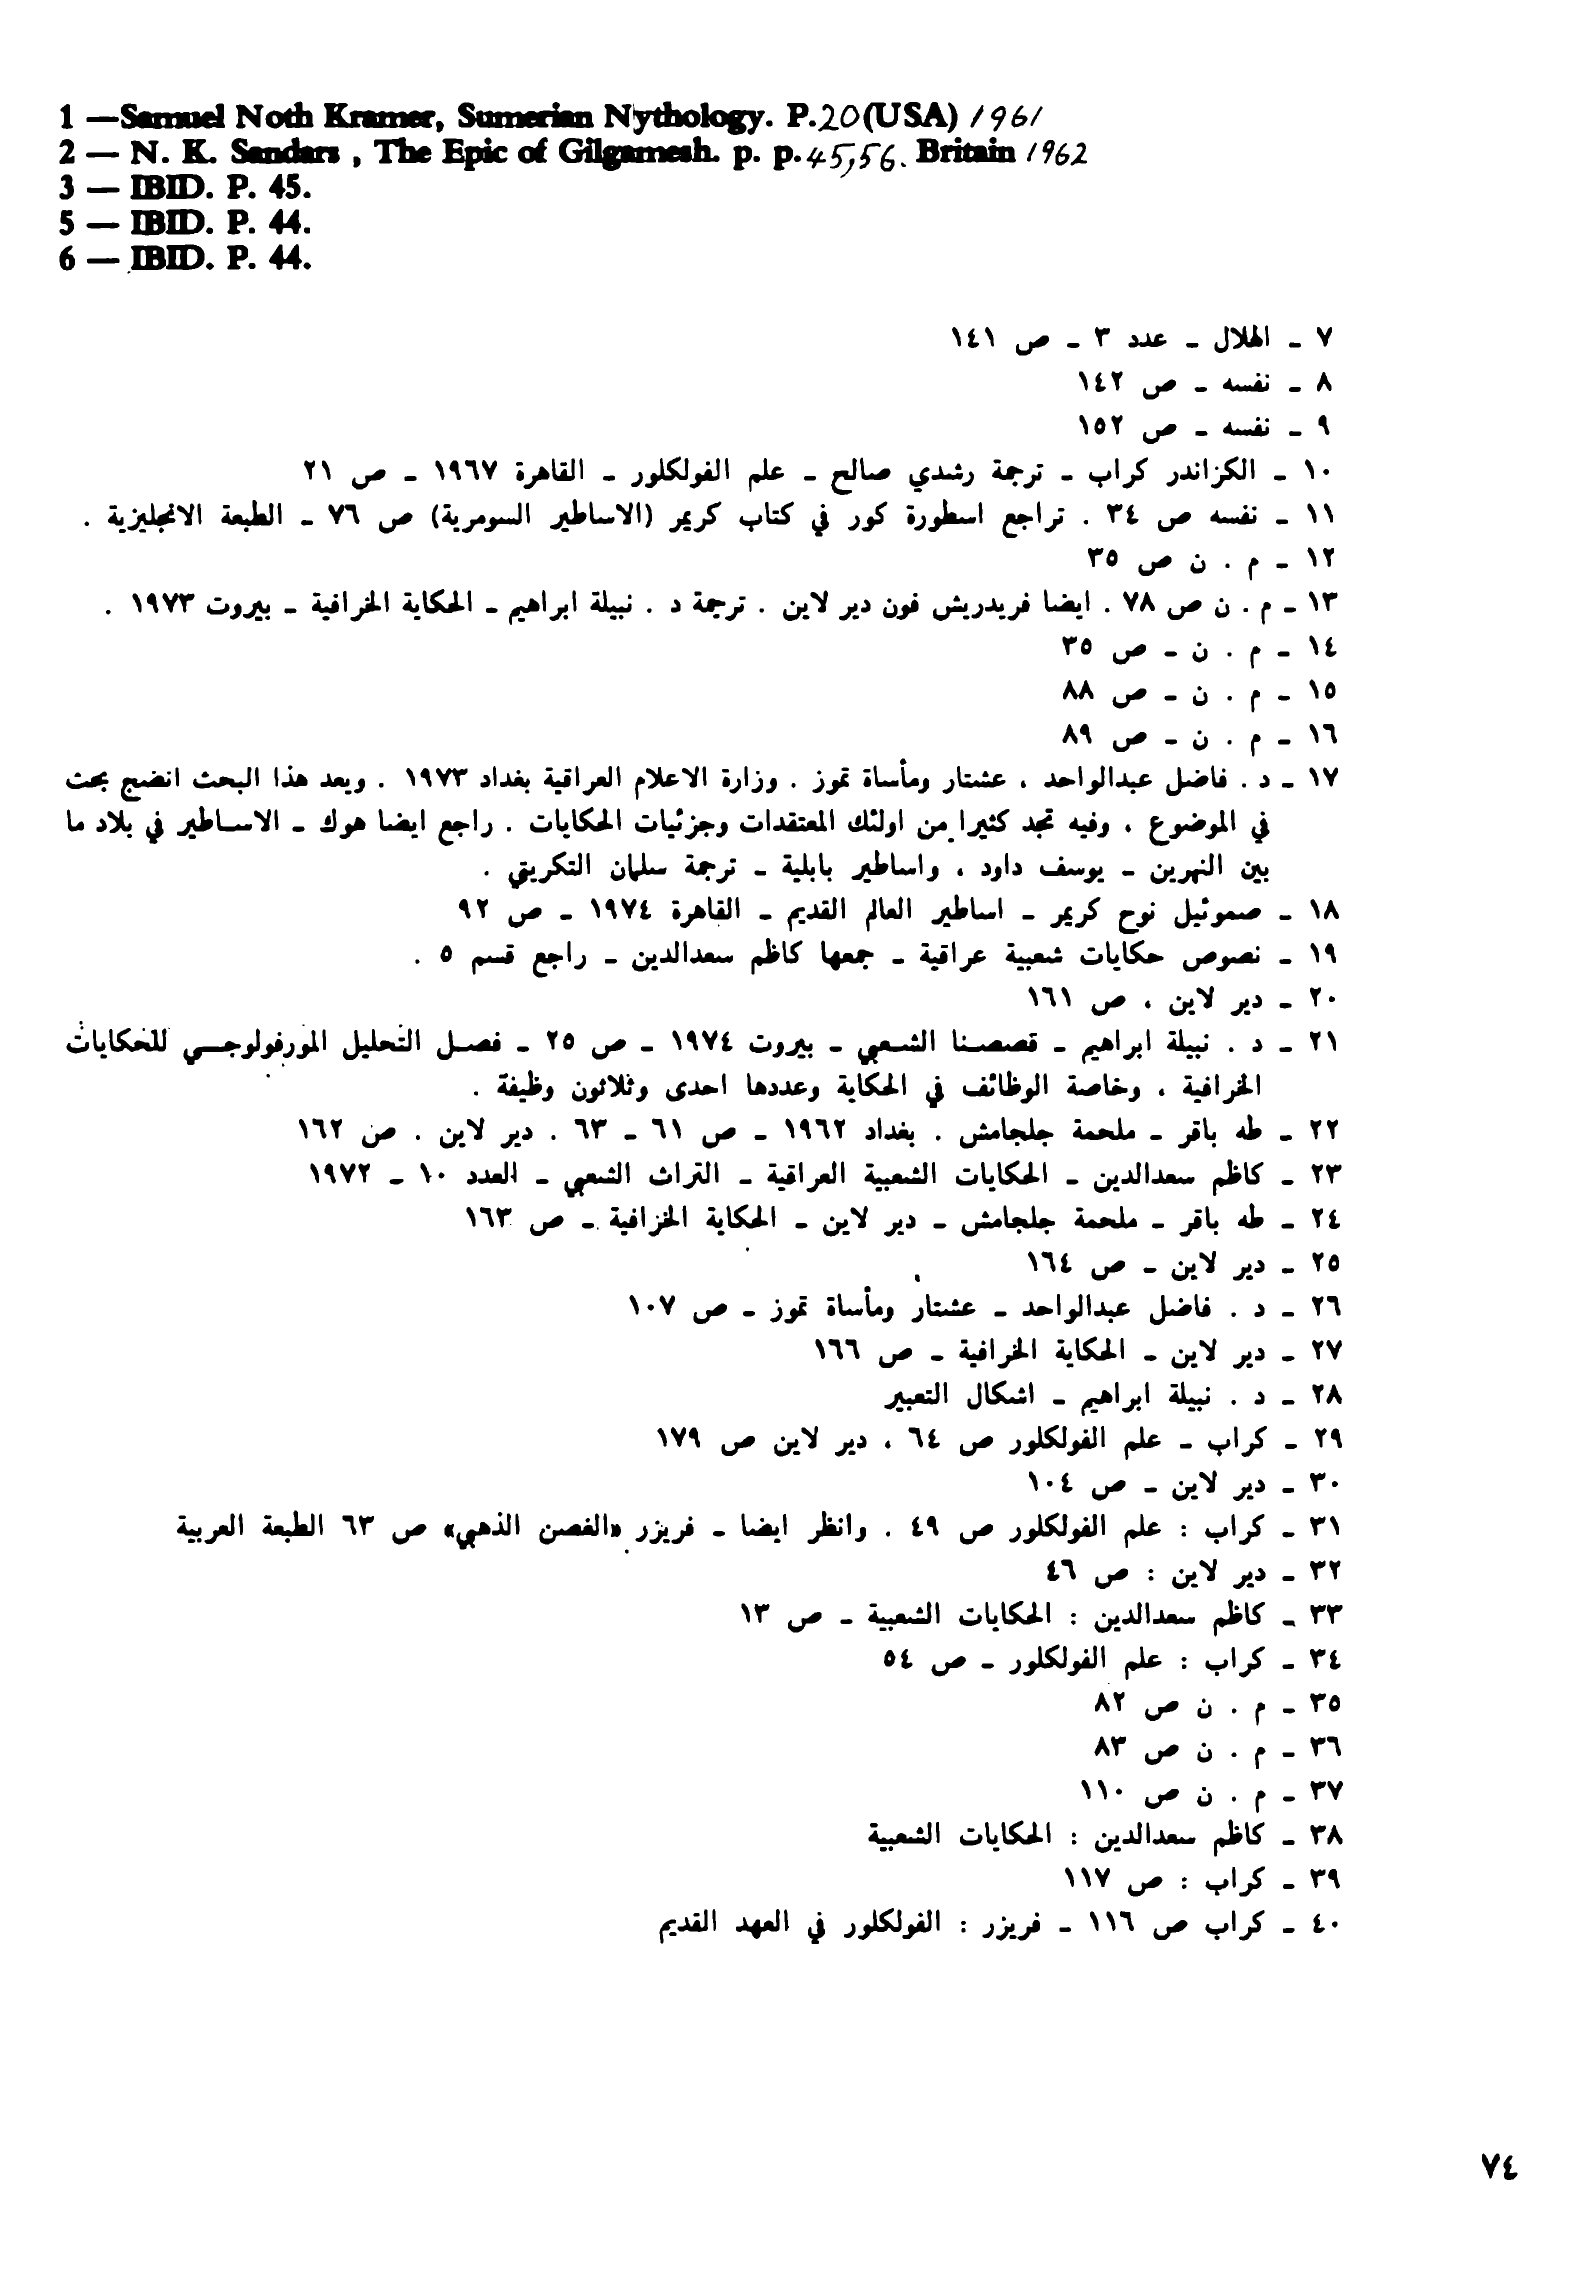 1 —Samuel Noth Kramer, Sumerian Nythology. P.20(USA) 1961
2 — N. K. Sandars , The Epic of Gilgamesh. p. p.45,56. Britain 1962
3 — IBID. P. 45.
5 — IBID. P. 44.
6 — IBID. P. 44.
٧ ـ الهلال ـ عدد ٣ ـ ص ١٤١
٨ ـ نفسه ـ ص ١٤٢
٩ ـ نفسه ـ ص ١٥٢
١٠ ـ الكزاندر كراب ـ ترجمة رشدي صالح ـ علم الفولكلور ـ القاهرة ١٩٦٧ ـ ص ٢١
١١ ـ نفسه ص ٣٤ . تراجع اسطورة كور في كتاب كريمر (الاساطير السومرية) ص ٧٦ ـ الطبعة الانجليزية .
١٢ ـ م . ن ص ٣٥
١٣ ـ م . ن ص ٧٨ . ايضا فريدريش فون دير لاين . ترجمة د . نبيلة ابراهيم ـ الحكاية الخرافية ـ بيروت ١٩٧٣ .
١٤ ـ م . ن ـ ص ٣٥
١٥ ـ م . ن ـ ص ٨٨
١٦ ـ م . ن ـ ص ٨٩
١٧ ـ د . فاضل عبدالواحد ، عشتار ومأساة تموز . وزارة الاعلام العراقية بغداد ١٩٧٣ . ويعد هذا البحث انضج بحث
في الموضوع ، وفيه تجد كثيرا من اولئك المعتقدات وجزئيات الحكايات . راجع ايضا هوك ـ الاساطير في بلاد ما
بين النهرين ـ يوسف داود ، واساطير بابلية ـ ترجمة سلمان التكريتي .
١٨ ـ صموئيل نوح كريمر ـ اساطير العالم القديم ـ القاهرة ١٩٧٤ ـ ص ٩٢
١٩ ـ نصوص حكايات شعبية عراقية ـ جمعها كاظم سعدالدين ـ راجع قسم ٥ .
٢٠ ـ دير لاين ، ص ١٦١
٢١ ـ د . نبيلة ابراهيم ـ قصصنا الشعبي ـ بيروت ١٩٧٤ ـ ص ٢٥ ـ فصل التحليل المورفولوجي للحكايات
الخرافية ، وخاصة الوظائف في الحكاية وعددها احدى وثلاثون وظيفة .
٢٢ ـ طه باقر ـ ملحمة جلجامش . بغداد ١٩٦٢ ـ ص ٦١ ـ ٦٣ . دير لاين . ص ١٦٢
٢٣ ـ كاظم سعدالدين ـ الحكايات الشعبية العراقية ـ التراث الشعبي ـ العدد ١٠ ـ ١٩٧٢
٢٤ ـ طه باقر ـ ملحمة جلجامش ـ دير لاين ـ الحكاية الخزافية ـ ص ١٦٣
٢٥ ـ دير لاين ـ ص ١٦٤
٢٦ ـ د . فاضل عبدالواحد ـ عشتار ومأساة تموز ـ ص ١٠٧
٢٧ ـ دير لاين ـ الحكاية الخرافية ـ ص ١٦٦
٢٨ ـ د . نبيلة ابراهيم ـ اشكال التعبير
٢٩ ـ كراب ـ علم الفولكلور ص ٦٤ ، دير لاين ص ١٧٩
٣٠ ـ دير لاين ـ ص ١٠٤
٣١ ـ كراب : علم الفولكلور ص ٤٩ . وانظر ايضا ـ فريزر «الغصن الذهبي» ص ٦٣ الطبعة العربية
٣٢ ـ دير لاين : ص ٤٦
٣٣ ـ كاظم سعدالدين : الحكايات الشعبية ـ ص ١٣
٣٤ ـ كراب : علم الفولكلور ـ ص ٥٤
٣٥ ـ م . ن ص ٨٢
٣٦ ـ م . ن ص ٨٣
٣٧ ـ م . ن ص ١١٠
٣٨ ـ كاظم سعدالدين : الحكايات الشعبية
٣٩ ـ كراب : ص ١١٧
٤٠ ـ كراب ص ١١٦ ـ فريزر : الفولكلور في العهد القديم
٧٤